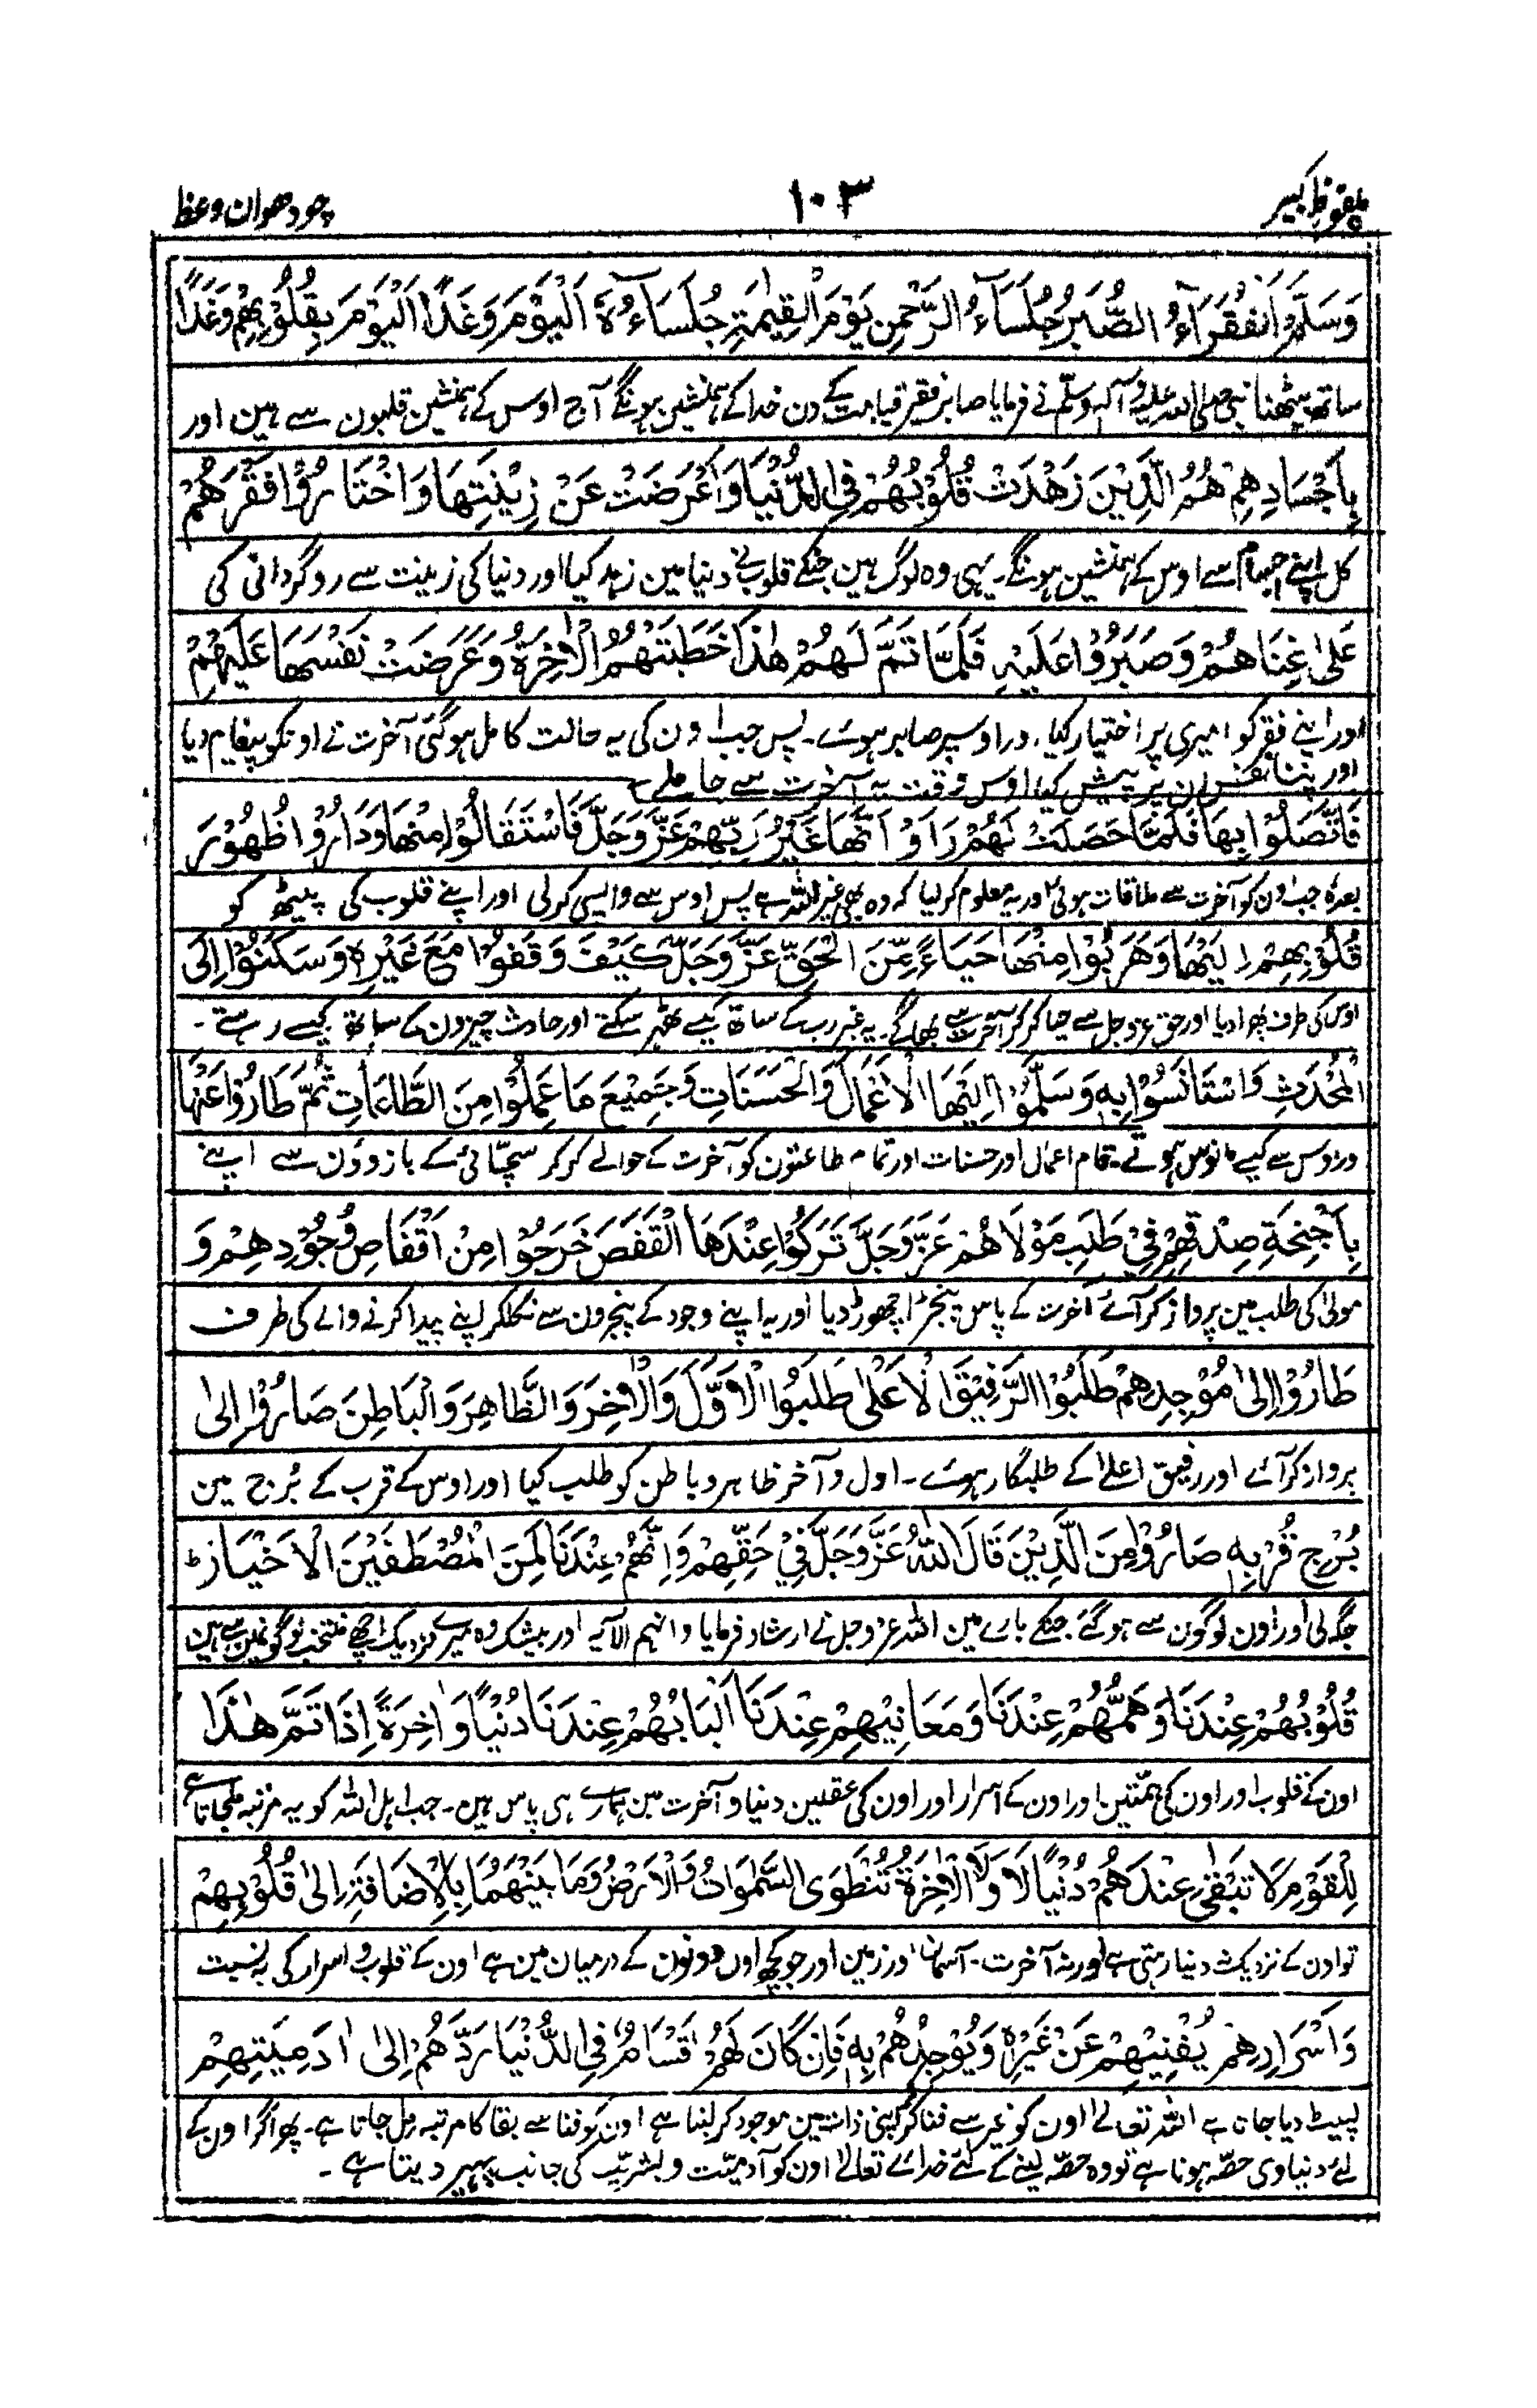 ملفوظ کبیر
١٠٣
چودھوان وعظ
وَسَلَّمَ اَلْفُقَرَآءُ الصُّبَّرُ جُلَسَآءُ الرَّحْمٰنِ یَوْمَ الْقِیٰمَةِ جُلَسَآءُهٗ اَلْیَوْمَ وَغَدًا اَلْیَوْمَ بِقُلُوْبِهِمْ وَغَدًا
ساتھ بیٹھنا نبی صلی اللہ علیہ وآلہ وسلّم نے فرمایا صابر فقیر قیامت کے دن خدا کے ہمنشین ہونگے آج اوس کے ہمنشین قلبون سے ہین اور
بِاَجْسَادِهِمْ هُمُ الَّذِیْنَ زَهَدَتْ قُلُوْبُهُمْ فِی الدُّنْیَا وَاَعْرَضَتْ عَنْ زِیْنَتِهَا وَاخْتَارُوْا فَقْرَهُمْ
کل اپنے اجسام سے اوس کے ہمنشین ہونگے۔ یہی وہ لوگ ہین جنکے قلوب نے دنیا مین زہد کیا اور دنیا کی زینت سے روگردانی کی
عَلٰی غِنَاهُمْ وَصَبَرُوْا عَلَیْهِ فَلَمَّا تَمَّ لَهُمْ هٰذَا خَطَبَتْهُمُ الْاٰخِرَةُ وَعَرَضَتْ نَفْسَهَا عَلَیْهِمْ
اور اپنے فقر کو امیری پر اختیار کیا، اور اوسپر صابر ہوئے۔ پس جب اون کی یہ حالت کامل ہوگئی آخرت نے اونکو پیغام دیا
اور اپنا نفس ان پر پیش کیا اوس وقت یہ آخرت سے جا ملے۔
فَاتَّصَلُوْا بِهَا فَلَمَّا حَصَلَتْ لَهُمْ رَاَوْ اَنَّهَا غَیْرُ رَبِّهِمْ عَزَّ وَجَلَّ فَاسْتَقَالُوْا مِنْهَا وَدَارُوْا ظُهُوْرَ
بعدہ جب اون کو آخرت سے ملاقات ہوئی اور یہ معلوم کرلیا کہ وہ بھی غیر اللہ ہے پس اوس سے واپسی کرلی اور اپنے قلوب کی پیٹھ کو
قُلُوْبِهِمْ اِلَیْهَا وَهَرَبُوْا مِنْهَا حَیَاءً مِّنَ الْحَقِّ عَزَّ وَجَلَّ کَیْفَ وَقَفُوْا مَعَ غَیْرِهٖ وَسَکَنُوْا اِلَی
اوس کی طرف پھرا دیا اور حق عزوجل سے حیا کرکر آخرت سے بھاگے۔ یہ غیر رب کے ساتھ کیسے ٹھہر سکتے اور حادث چیزون کے ساتھ کیسے رہتے۔
الْمُحْدَثِ وَاسْتَانَسُوْا بِهٖ وَسَلَّمُوْا اِلَیْهَا الْاَعْمَالَ وَالْحَسَنَاتِ وَجَمِیْعَ مَا عَمِلُوْا مِنَ الطَّاعَاتِ ثُمَّ طَارُوْا عَنْهَا
اور اوس سے کیسے مانوس ہوتے۔ تمام اعمال اور حسنات اور تمام طاعتون کو آخرت کے حوالے کرکر سچّائی کے بازوؤن سے اپنے
بِاَجْنِحَةِ صِدْقِهِمْ فِیْ طَلَبِ مَوْلَاهُمْ عَزَّ وَجَلَّ تَرَکُوْا عِنْدَهَا الْقَفَصَ خَرَجُوْا مِنْ اَقْفَاصِ وُجُوْدِهِمْ وَ
مولی کی طلب مین پرواز کر آئے آخرت کے پاس پنجرا چھوڑ دیا اور یہ اپنے وجود کے پنجرون سے نکلکر اپنے پیدا کرنے والے کی طرف
طَارُوْا اِلٰی مُوْجِدِهِمْ طَلَبُوا الرَّفِیْقَ الْاَعْلٰی طَلَبُوا الْاَوَّلَ وَالْاٰخِرَ وَالظَّاهِرَ وَالْبَاطِنَ صَارُوْا اِلٰی
پرواز کر آئے اور رفیق اعلے کے طلبگار ہوئے۔ اول و آخر ظاہر و باطن کو طلب کیا اور اوس کے قرب کے بُرج مین
بُرْجِ قُرْبِهٖ صَارُوْا مِنَ الَّذِیْنَ قَالَ اللّٰهُ عَزَّ وَجَلَّ فِیْ حَقِّهِمْ وَاِنَّهُمْ عِنْدَنَا لَمِنَ الْمُصْطَفَیْنَ الْاَخْیَارْ ط
جگہ لی اور اون لوگون سے ہوگئے جنکے بارے مین اللہ عزوجل نے ارشاد فرمایا وانہم الآیہ اور بیشک وہ میرے نزدیک اچھے منتخب لوگونمین سے ہین
قُلُوْبُهُمْ عِنْدَنَا وَهِمَّهُمْ عِنْدَنَا وَمَعَانِیْهِمْ عِنْدَنَا اَلْبَابُهُمْ عِنْدَنَا دُنْیًا وَاٰخِرَةً اِذَا تَمَّ هٰذَا
اون کے قلوب اور اون کی ہمتین اور اون کے اسرار اور اون کی عقلین دنیا و آخرت مین ہمارے ہی پاس ہین۔ جب اہل اللہ کو یہ مرتبہ ملجاتا ہے
لِلْقَوْمِ لَا تَبْقٰی عِنْدَهُمْ دُنْیًا لَا وَلَا الْاٰخِرَةُ تَنْطَوِی السَّمٰوَاتُ وَالْاَرْضُ وَمَا بَیْنَهُمَا بِالْاِضَافَةِ اِلٰی قُلُوْبِهِمْ
تو اون کے نزدیک نہ دنیا رہتی ہے اور نہ آخرت۔ آسمان اور زمین اور جو کچھ اون دونون کے درمیان مین ہے اون کے قلوب و اسرار کی بہ نسبت
وَاَسْرَارِهِمْ یُفْنِیْهِمْ عَنْ غَیْرِهٖ وَیُوْجِدُهُمْ بِهٖ فَاِنْ کَانَ لَهُمْ اَقْسَامٌ فِی الدُّنْیَا رَدَّهُمْ اِلٰی اٰدَمِیَّتِهِمْ
لپیٹ دیا جاتا ہے اللہ تعالےٰ اون کو غیر سے فنا کرکے اپنی ذات مین موجود کرلیتا ہے اون کو فنا سے بقا کا مرتبہ مل جاتا ہے۔ پھر اگر اون کے
لئے دنیاوی حصّہ ہوتا ہے تو وہ حصّہ لینے کے لئے خدائے تعالےٰ اون کو آدمیّت و بشریّت کی جانب پہیر دیتا ہے۔